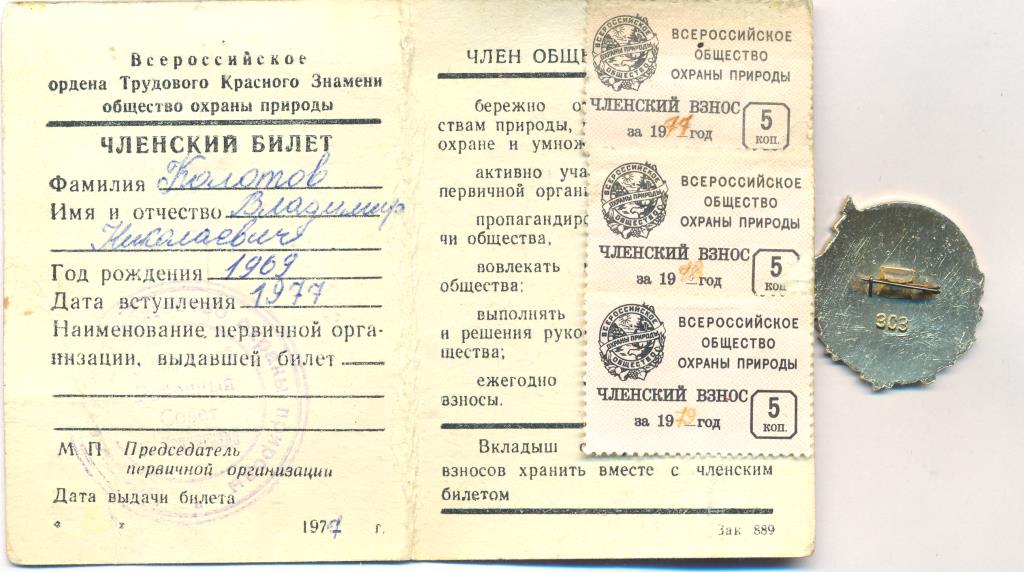 Всероссийское
ордена Трудового Красного Знамени
общество охраны природы
ЧЛЕНСКИЙ БИЛЕТ
Фамилия Колотов
Имя и отчество Владимир
Николаевич
Год рождения 1969
Дата вступления 1977
Наименование первичной орга-
низации, выдавшей билет
М П Председатель
первичной организации
Дата выдачи билета
" " 1977 г.
ЧЛЕН ОБЩЕ
бережно о
ствам природы,
охране и умнож
активно уча
первичной орган
пропагандиро
чи общества,
вовлекать
общества;
выполнять
и решения руко
щества;
ежегодно
взносы.
Вкладыш с
взносов хранить вместе с членским
билетом
Зак 889
ВСЕРОССИЙСКОЕ
ОБЩЕСТВО
ОХРАНЫ ПРИРОДЫ
ВСЕРОССИЙСКОЕ
ОХРАНЫ ПРИРОДЫ
ОБЩЕСТВО
ЧЛЕНСКИЙ ВЗНОС
за 1977 год
5
коп.
ВСЕРОССИЙСКОЕ
ОБЩЕСТВО
ОХРАНЫ ПРИРОДЫ
ВСЕРОССИЙСКОЕ
ОХРАНЫ ПРИРОДЫ
ОБЩЕСТВО
ЧЛЕНСКИЙ ВЗНОС
за 1978 год
5
коп.
ВСЕРОССИЙСКОЕ
ОБЩЕСТВО
ОХРАНЫ ПРИРОДЫ
ВСЕРОССИЙСКОЕ
ОХРАНЫ ПРИРОДЫ
ОБЩЕСТВО
ЧЛЕНСКИЙ ВЗНОС
за 1979 год
5
коп.
ЭСЗ